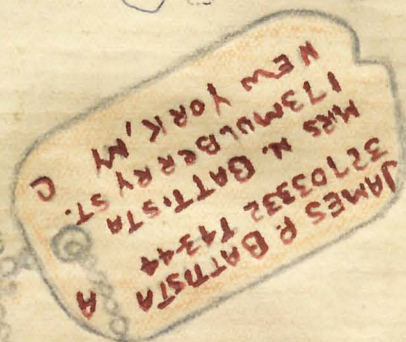 JAMES P. BATTISTA
32703332 T43-44 A
MRS N. BATTISTA
173 MULBERRY ST.
NEW YORK, NY C